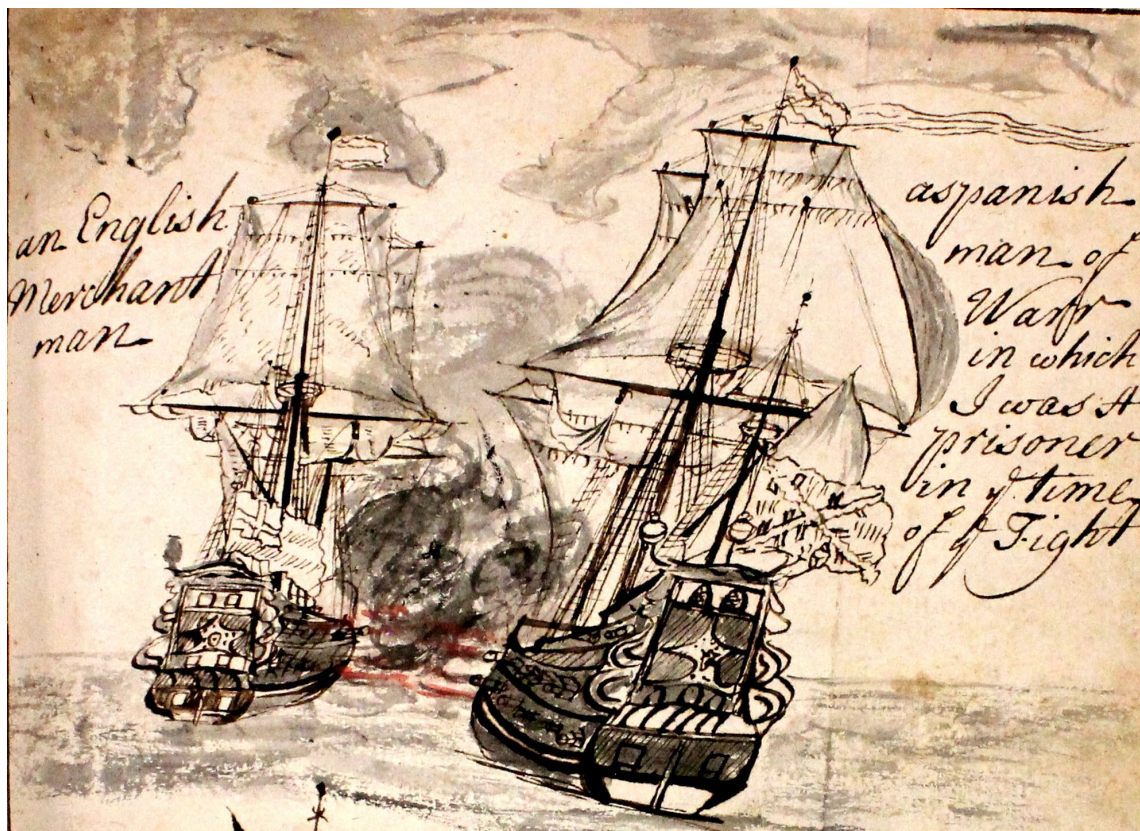 an English
Merchant
man
a spanish
man of
Warr
in which
I was A
prisoner
in yͤ time
of yͤ Fight